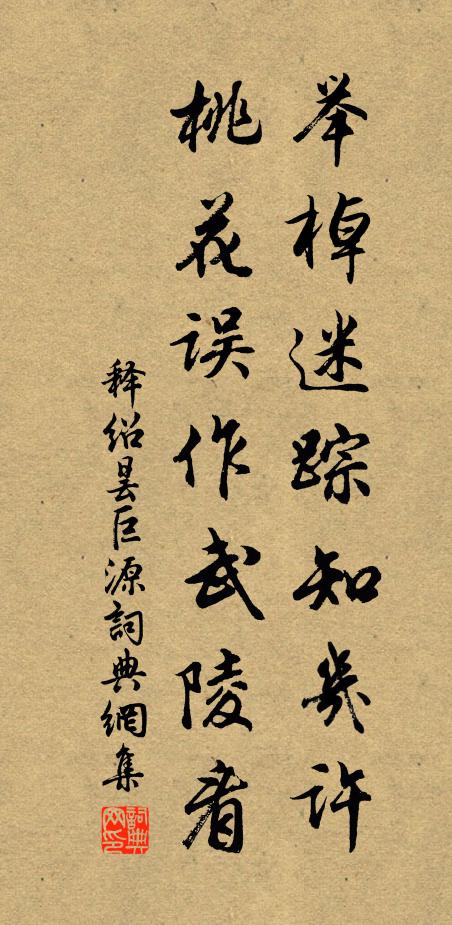 举棹迷踪知几许
桃花误作武陵看
释绍昙巨源詞典網集
詞典网印